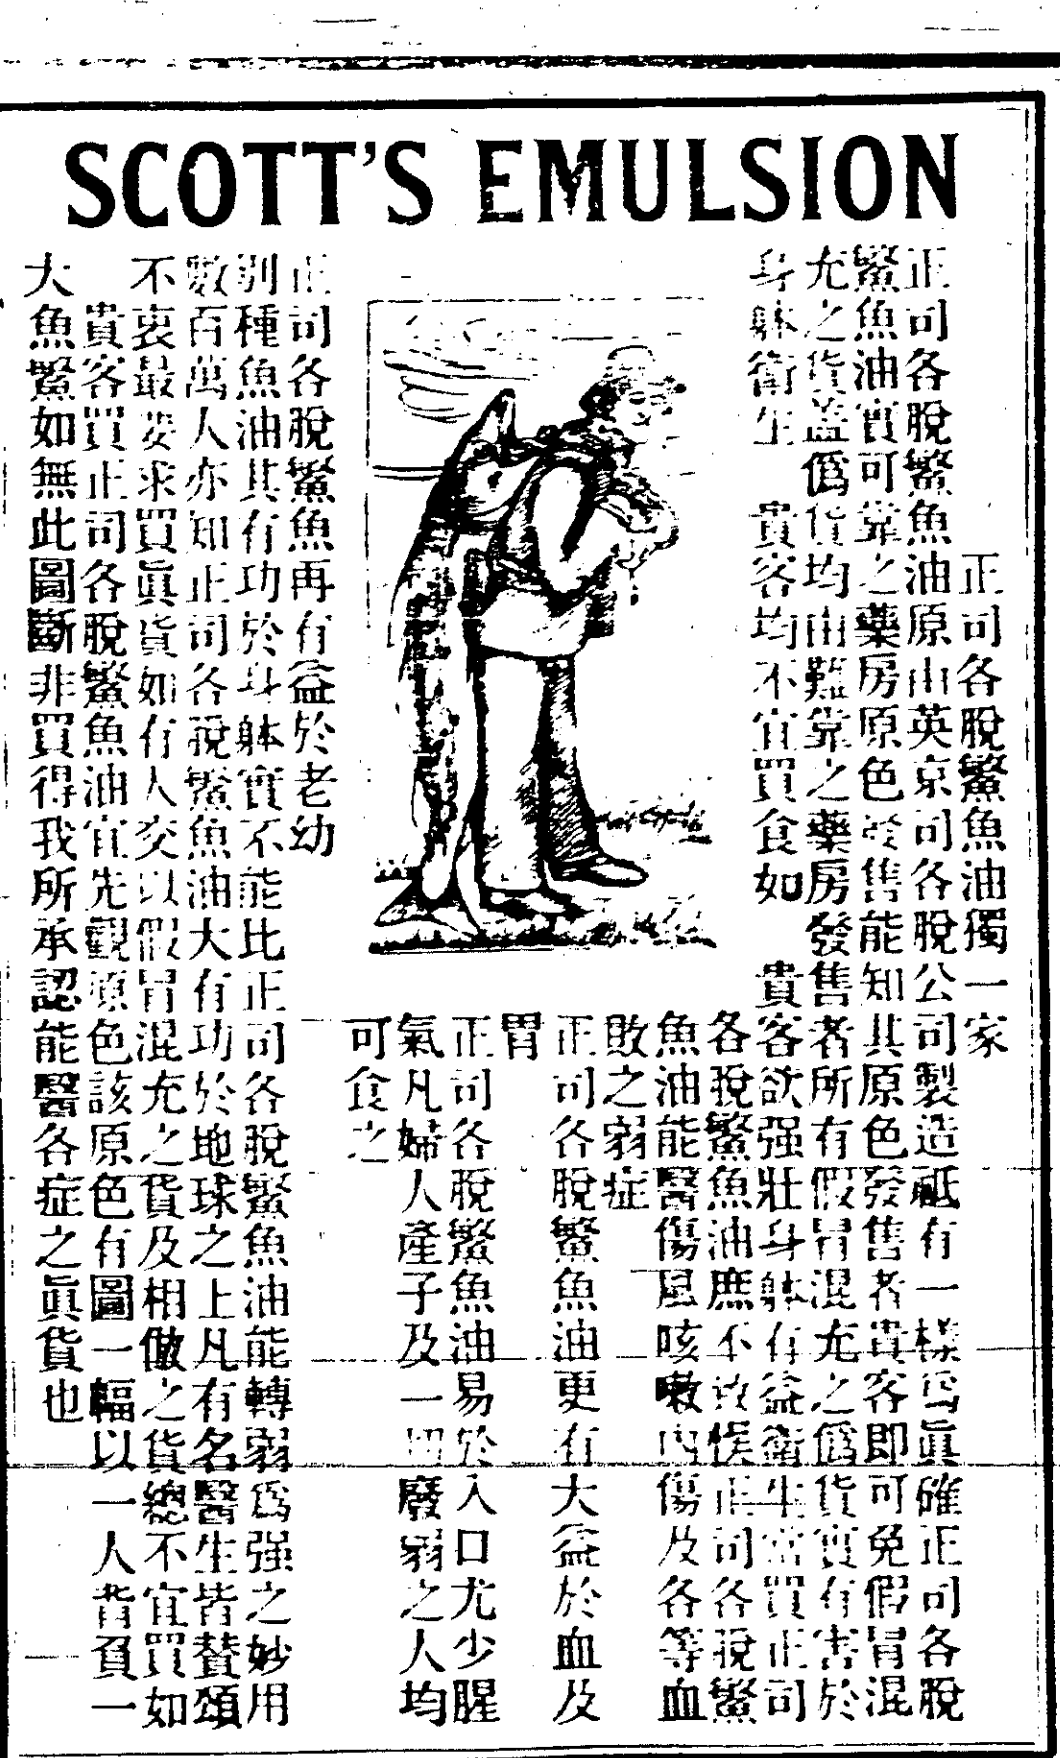 SCOTT'S EMULSION
正司各脫鰵魚油獨一家
正司各脫鰵魚油原由英京司各脫公司製造祗有一樣為眞確正司各脫
鰵魚油實可靠之藥房原色發售能知其原色發售者貴客即可免假冒混
充之貨蓋僞貨均由難靠之藥房發售者所有假冒混充之僞貨實有害於
身躰衛生 貴客均不宜買食如 貴客欲强壯身躰有益衛生當買正司
各脫鰵魚油庶不致悞正司各脫鰵
魚油能醫傷風咳嗽內傷及各等血
敗之弱症
正司各脫鰵魚油更有大益於血及
胃
正司各脫鰵魚油易於入口尤少腥
氣凡婦人產子及一切廢弱之人均
可食之
正司各脫鰵魚再有益於老幼
别種魚油其有功於身躰實不能比正司各脫鰵魚油能轉弱爲强之妙用
數百萬人亦知正司各脫鰵魚油大有功於地球之上凡有名醫生皆贊頌
不衷最要求買眞貨如有人交以假冒混充之貨及相倣之貨總不宜買如
貴客買正司各脫鰵魚油宜先觀原色該原色有圖一輻以一人背負一
大魚鰵如無此圖斷非買得我所承認能醫各症之眞貨也